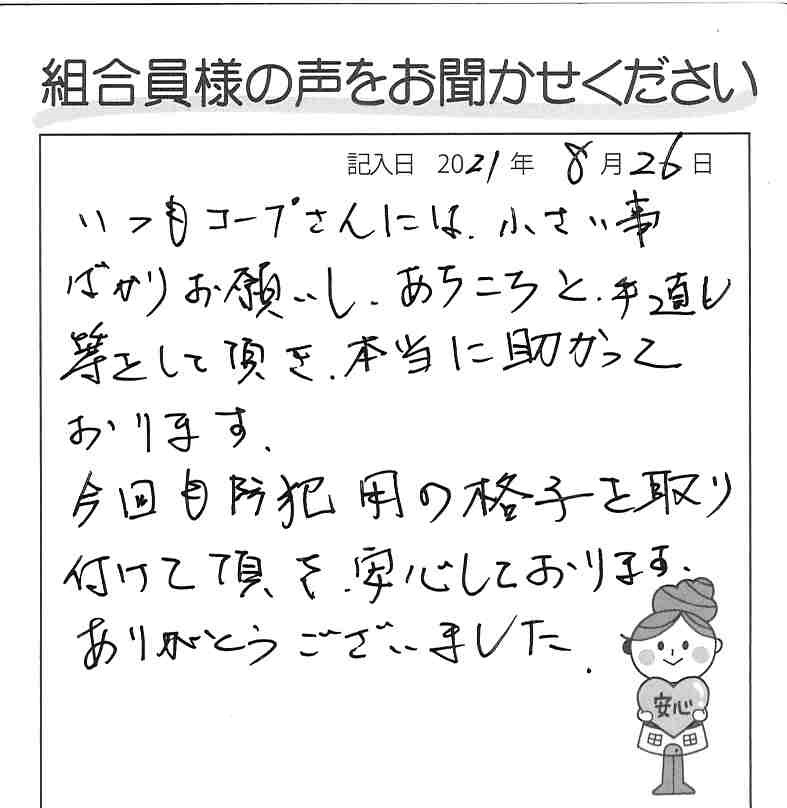 組合員様の声をお聞かせください
記入日 2021年 8月26日
いつもコープさんには、小さい事
ばかりお願いし、あちこちと、手直し
等をして頂き、本当に助かって
おります。
今回も防犯用の格子を取り
付けて頂き、安心しております。
ありがとうございました。
安心